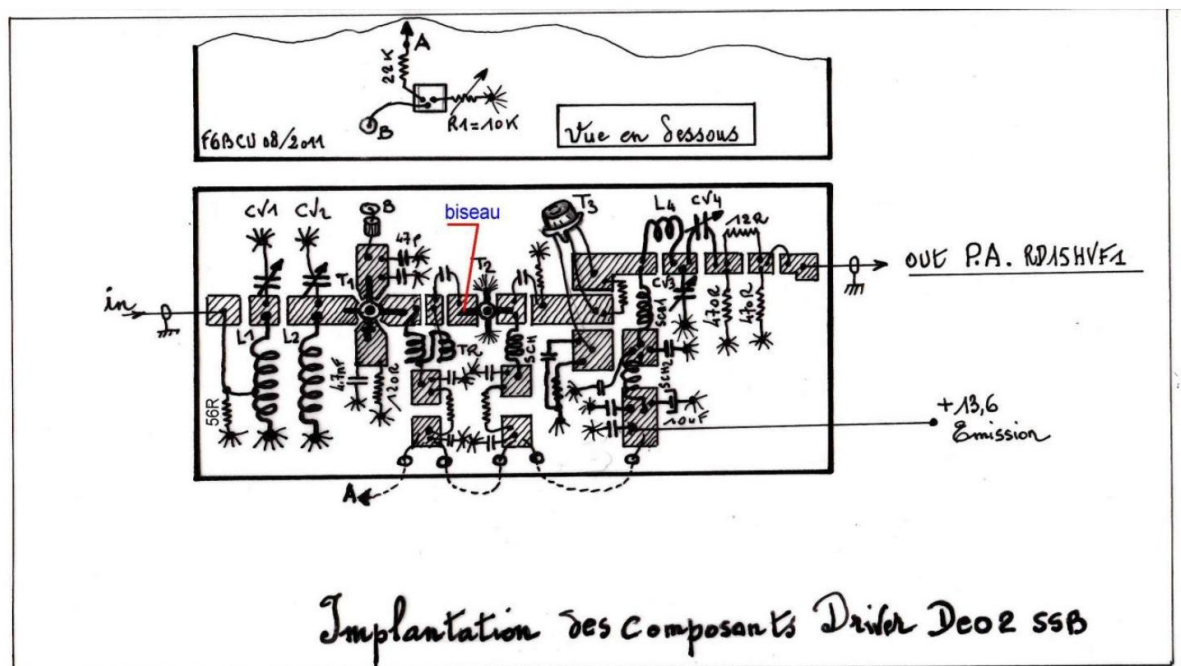 A
22K
B
R1=10K
F6BCU 08/2011
Vue en dessous
CV1
CV2
B
47P
biseau
T1
T2
T3
L4
CV4
12R
OUT P.A. RD15HVF1
in
L1
L2
CV3
SCH1
470R
470R
56R
4.7nF
120R
TR
SCH
SCH2
10uF
+13,6
Emission
A
Implantation des composants Driver Deo2 SSB